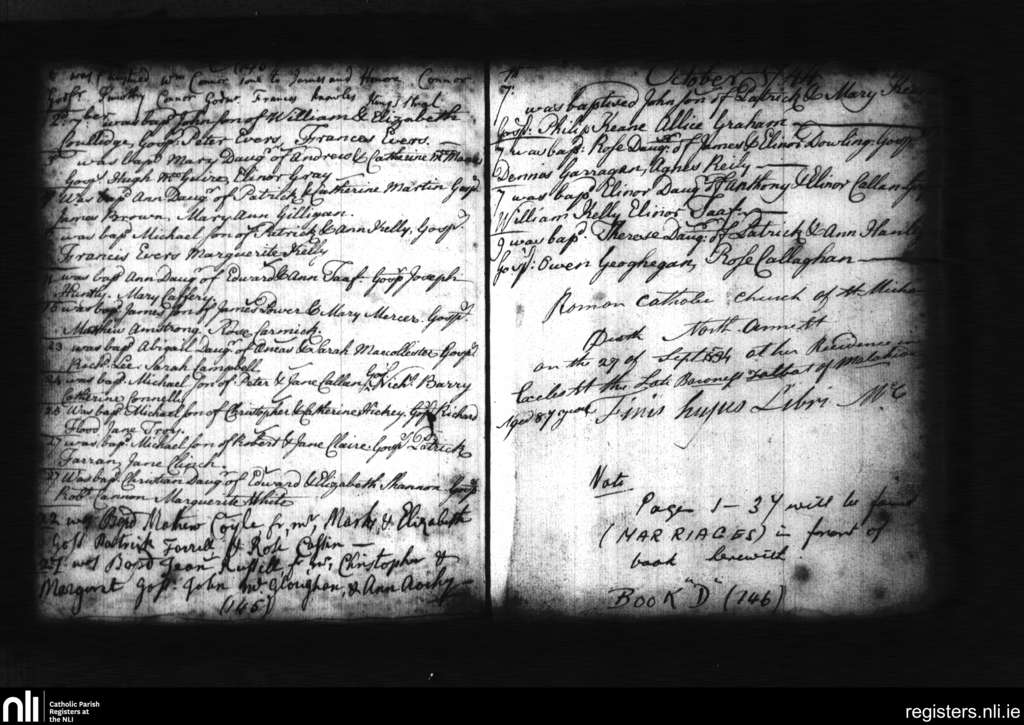 was Baptised Wm Connor Son to James and Honore Connor
Gosprs Timothy Connor Godmr Frances
was bapd John Son of William & Elizabeth
Coulledge, Gosps Peter Evers, Frances Evers.
7 was bapd Mary Daugr of Andrew & Catherine
Gosps Hugh McGuire, Elinor Gray
8 Was bap Ann Daugr of Patrick & Catherine Martin Gosps
James Brown, Mary Ann Gilligan.
was bapd Michael Son of Patrick & Ann Kelly, Gosps
Francis Evers Marguerite Kelly
was bapd Ann Daugr of Edward & Ann Taaf. Gosps Joseph
Huesty. Mary Caffery
15 was bapd James Son of James Power & Mary Mercer. Gosps
Mathew Amstrong Rose Carmick.
23 was bapd Abigail Daugr of Aneas & Sarah Macollester Gosps
Richd Lee. Sarah Campbell
24 was bapd Michael Son of Peter & Jane Callan, Gosps Nichs Barry
Catherine Connelly
26 Was bapd Michael Son of Christopher & Catherine Hickey. Gosps Richard
Flood Jane Troy.
27 was bapd Michael Son of Robert & Jane Claire Gosps Patrick
Farran, Jane Clinch.
27 Was bapd Christian Daugr of Edward & Elizabeth Shannon Gosps
Robt Cannon Marguerite White
22 was Bapd Mathew Coyle fr, mr Mark & Elizabeth
Gosps Patrick Farrell & Rose Costin
27. was Bapd Jean Russill, fr mr, Christopher &
Margaret Gosp. John Mc Gloughan, & Ann
(145)
October
7. was baptised John Son of Patrick & Mary
Gosps. Philip Keane Allice Graham
7 was bapd. Rose Daugr of James & Elinor Dowling. Gosps
Dennis Garragan, Agnes Reily
7 was bapd. Elinor Daugr of Anthony & Elinor Callan Gosps
William Kelly Elinor Taaf
9 was bapd. Therese Daugr of Patrick & Ann Hanly
Gosps. Owen Geoghegan, Rose Callaghan
Roman Catholic Church of St Micha
North Ann St
on the 27 of Sept 1834 at her Residence
Eccles St the Late Baroness Talbot of Malahide
Aged 87 years Finis hujus Libri
Note
Pages 1 - 37 will be found
(MARRIAGES) in front of
book herewith
BOOK "D" (146)
nli
Catholic Parish
Registers at
the NLI
registers.nli.ie